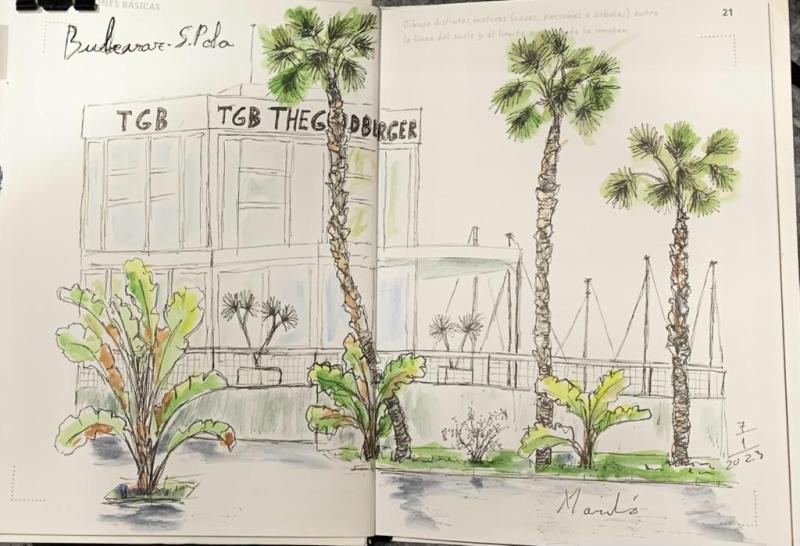 NES BÁSICAS
S. Pola
Dibuja distintos motivos (casas, personas o árboles) entre
la línea del suelo y el límite de la imagen
21
TGB
TGB THEGOODBURGER
7
1
2023